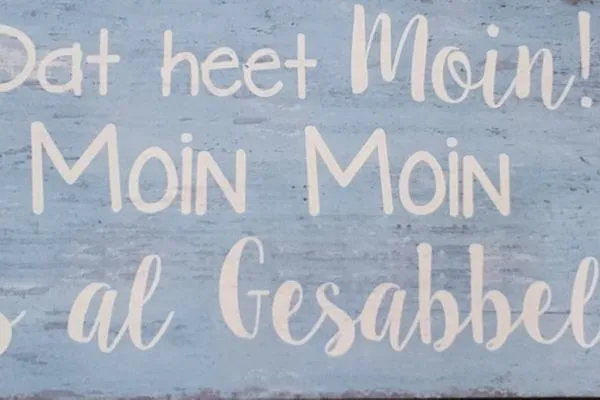 Dat heet Moin!
Moin Moin
s al Gesabbel